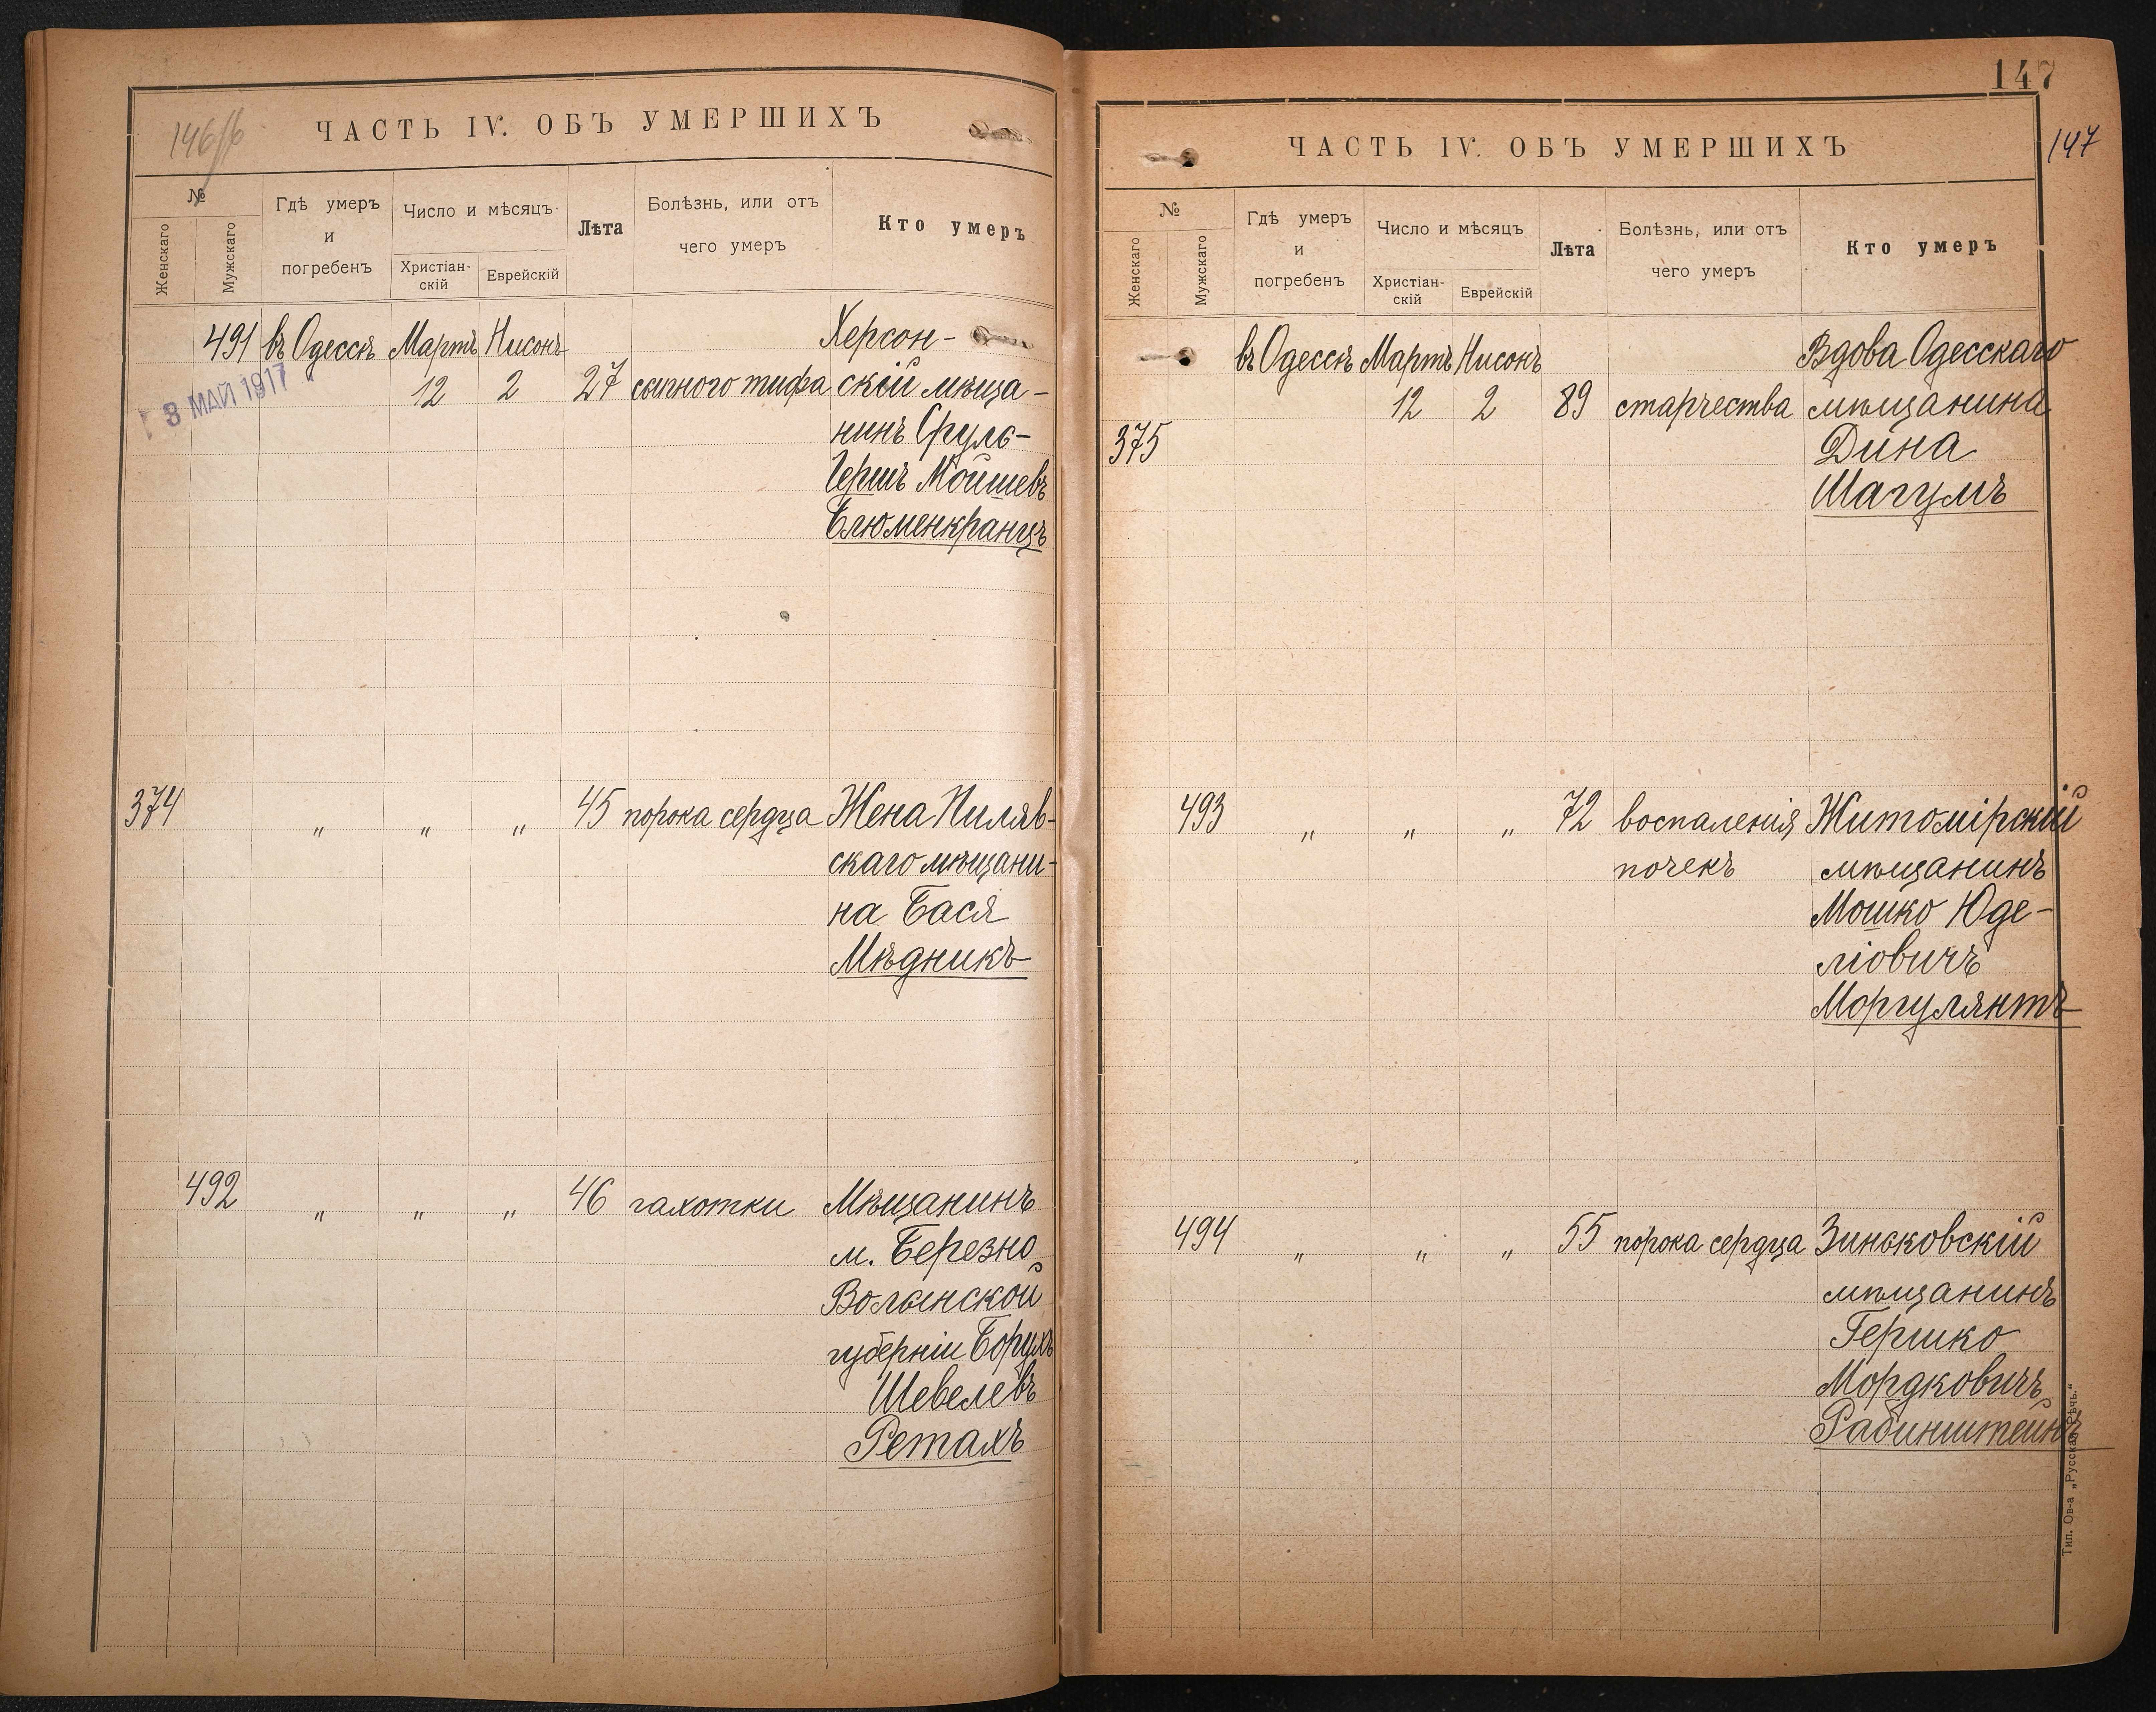 146/б
ЧАСТЬ IV. ОБЪ УМЕРШИХЪ
№
Женскаго
Мужскаго
Гдѣ умеръ
и
погребенъ
Число и мѣсяцъ
Христіан-
скій
Еврейскій
Лѣта
Болѣзнь, или отъ
чего умеръ
Кто умеръ
491 въ Одессѣ Мартъ Нисонъ Херсон-
3 МАЙ 1917
12 2 27 сыпного тифа скій мѣща-
нинъ Сруль-
Гершъ Мойшевъ
Блюменкранцъ
374 " " " 45 порока сердца Жена Пиляв-
скаго мѣщани-
на Бася
Мѣдникъ
492 " " " 46 чахотки Мѣщанинъ
м. Березно
Волынской
губерніи Борухъ
Шевелевъ
Ретахъ
147
147
ЧАСТЬ IV. ОБЪ УМЕРШИХЪ
№
Женскаго
Мужскаго
Гдѣ умеръ
и
погребенъ
Число и мѣсяцъ
Христіан-
скій
Еврейскій
Лѣта
Болѣзнь, или отъ
чего умеръ
Кто умеръ
въ Одессѣ Мартъ Нисонъ Вдова Одесскаго
12 2 89 старчества мѣщанина
375 Дина
Шагумъ
493 " " " 72 воспаленія Житомірскій
почекъ мѣщанинъ
Мошко Юде-
ліовичъ
Моргулянтъ
494 " " " 55 порока сердца Зиньковскій
мѣщанинъ
Гершко
Мордковичъ
Рабинштейнъ
Тип. Ов-а „Русская Рѣчь."